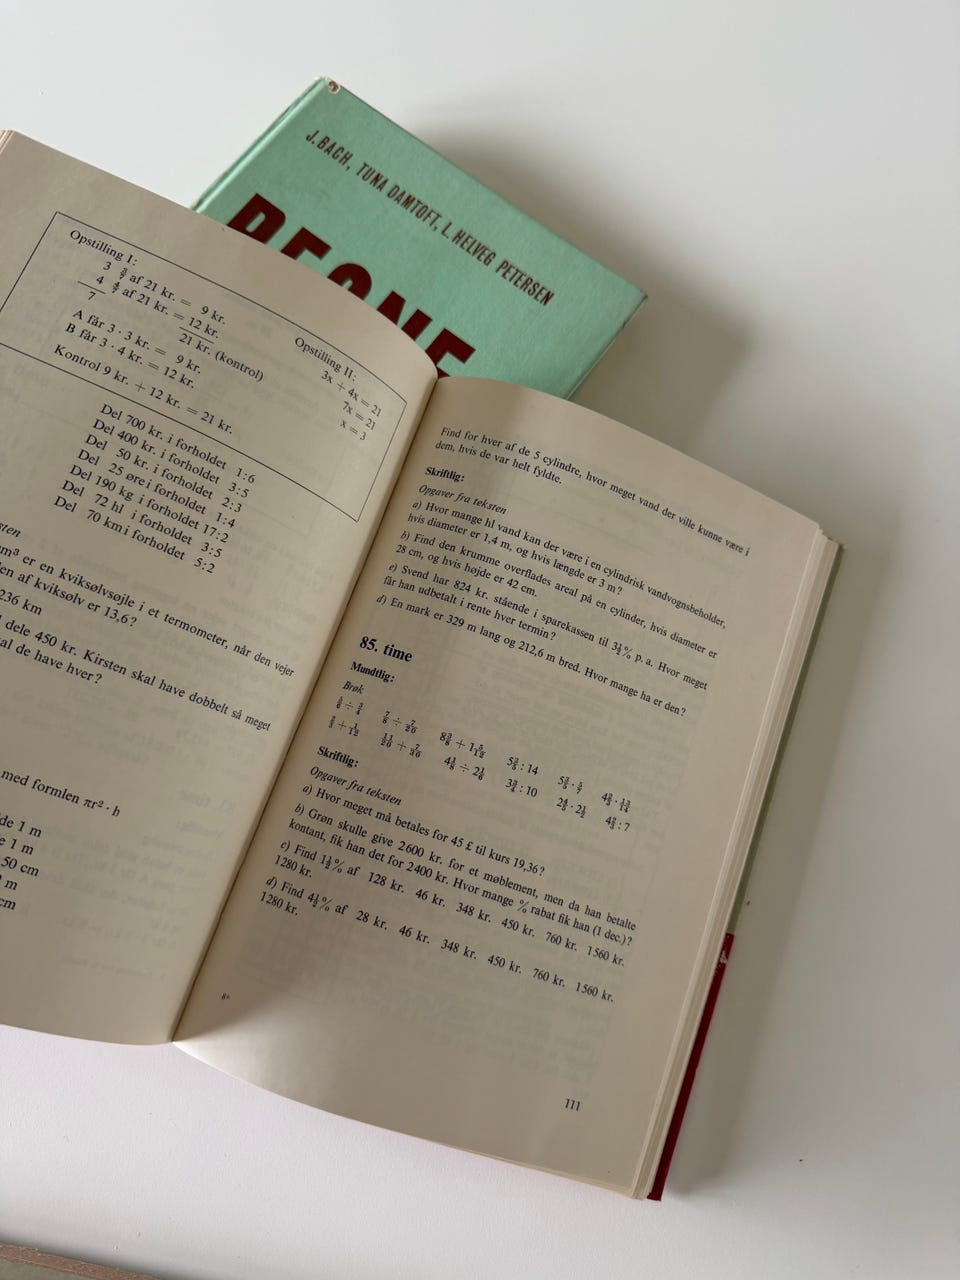 J. BACH, TUNA DAMTOFT, L. HELVEG PETERSEN
REGNE
Opstilling I:
3 3/7 af 21 kr. = 9 kr.
4 4/7 af 21 kr. = 12 kr.
7 21 kr. (kontrol)
A får 3 · 3 kr. = 9 kr.
B får 3 · 4 kr. = 12 kr.
Kontrol 9 kr. + 12 kr. = 21 kr.
Opstilling II:
3x + 4x = 21
7x = 21
x = 3
Del 700 kr. i forholdet 1:6
Del 400 kr. i forholdet 3:5
Del 50 kr. i forholdet 2:3
Del 25 øre i forholdet 1:4
Del 190 kg i forholdet 17:2
Del 72 hl i forholdet 3:5
Del 70 km i forholdet 5:2
er en kviksølvsøjle i et termometer, når den vejer
af kviksølv er 13,6?
236 km
dele 450 kr. Kirsten skal have dobbelt så meget
de have hver?
med formlen πr² · h
1 m
1 m
50 cm
m
cm
Find for hver af de 5 cylindre, hvor meget vand der ville kunne være i
dem, hvis de var helt fyldte.
Skriftlig:
Opgaver fra teksten
a) Hvor mange hl vand kan der være i en cylindrisk vandvognsbeholder,
hvis diameter er 1,4 m, og hvis længde er 3 m?
b) Find den krumme overflades areal på en cylinder, hvis diameter er
28 cm, og hvis højde er 42 cm.
c) Svend har 824 kr. stående i sparekassen til 3½% p. a. Hvor meget
får han udbetalt i rente hver termin?
d) En mark er 329 m lang og 212,6 m bred. Hvor mange ha er den?
85. time
Mundtlig:
Brøk
Skriftlig:
Opgaver fra teksten
a) Hvor meget må betales for 45 £ til kurs 19,36?
b) Grøn skulle give 2600 kr. for et møblement, men da han betalte
kontant, fik han det for 2400 kr. Hvor mange % rabat fik han (1 dec.)?
c) Find 1½% af 128 kr. 46 kr. 348 kr. 450 kr. 760 kr. 1560 kr.
1280 kr.
d) Find 4½% af 28 kr. 46 kr. 348 kr. 450 kr. 760 kr. 1560 kr.
1280 kr.
8*
111